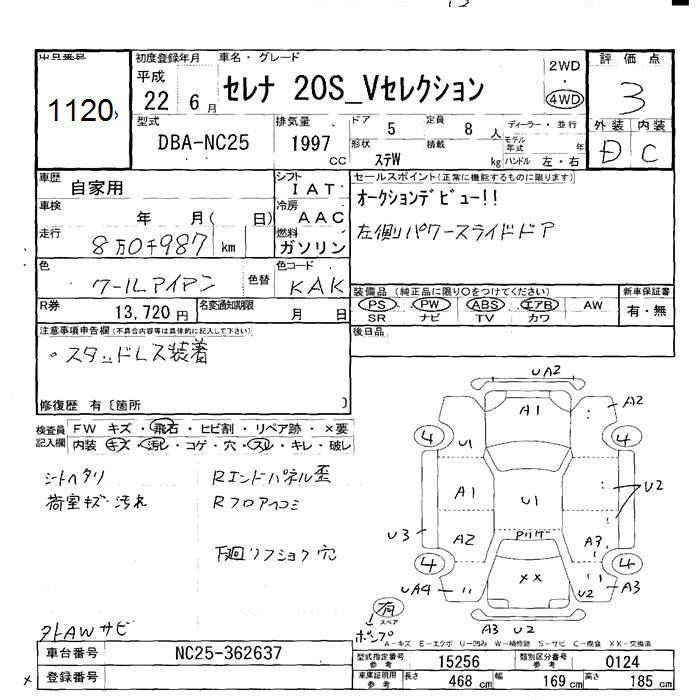 出品番号
1120
初度登録年月
平成
22 6月
車名・グレード
セレナ 20S_Vセレクション
2WD
・
4WD
評価点
3
外装 内装
D C
型式
DBA-NC25
排気量
1997
cc
ドア
5
定員
8人
形状
ステW
積載
kg
ディーラー・並行
モデル年式
年
ハンドル 左・右
車歴
自家用
車検
年 月( 日)
走行
8万0千987 km
色
クールアイアン
色替
R券
13,720円
名変通知期限
月 日
シフト
IAT
冷房
AAC
燃料
ガソリン
色コード
KAK
セールスポイント(正常に機能するものに限ります)
オークションデビュー!!
左側パワースライドドア
装備品(純正品に限り○をつけてください)
PS PW ABS エアB AW
SR ナビ TV カワ
新車保証書
有・無
後日品
注意事項申告欄(不具合内容等は具体的に記入して下さい)
・スタッドレス装着
修復歴 有〔箇所 〕
検査員記入欄
FW キズ・飛石・ヒビ割・リペア跡・×要
内装 キズ・汚れ・コゲ・穴・スレ・キレ・破レ
シートヘタリ
荷室キズ・汚れ
Rエンドパネル歪
Rフロア凹コミ
下廻リフショク穴
外AWサビ
UA2
A1
A2
4
U1
4
A1
U1
U2
U3
A2
A3
4
××
4
UA4
U2
A3
A3 U2
有
スペア
A-キズ E-エクボ U-凹み W-補修跡 S-サビ C-腐食 XX-交換済
車台番号
NC25-362637
登録番号
型式指定番号
参考
15256
類別区分番号
参考
0124
車庫証明用
参考
長さ 468cm
幅 169cm
高さ 185cm